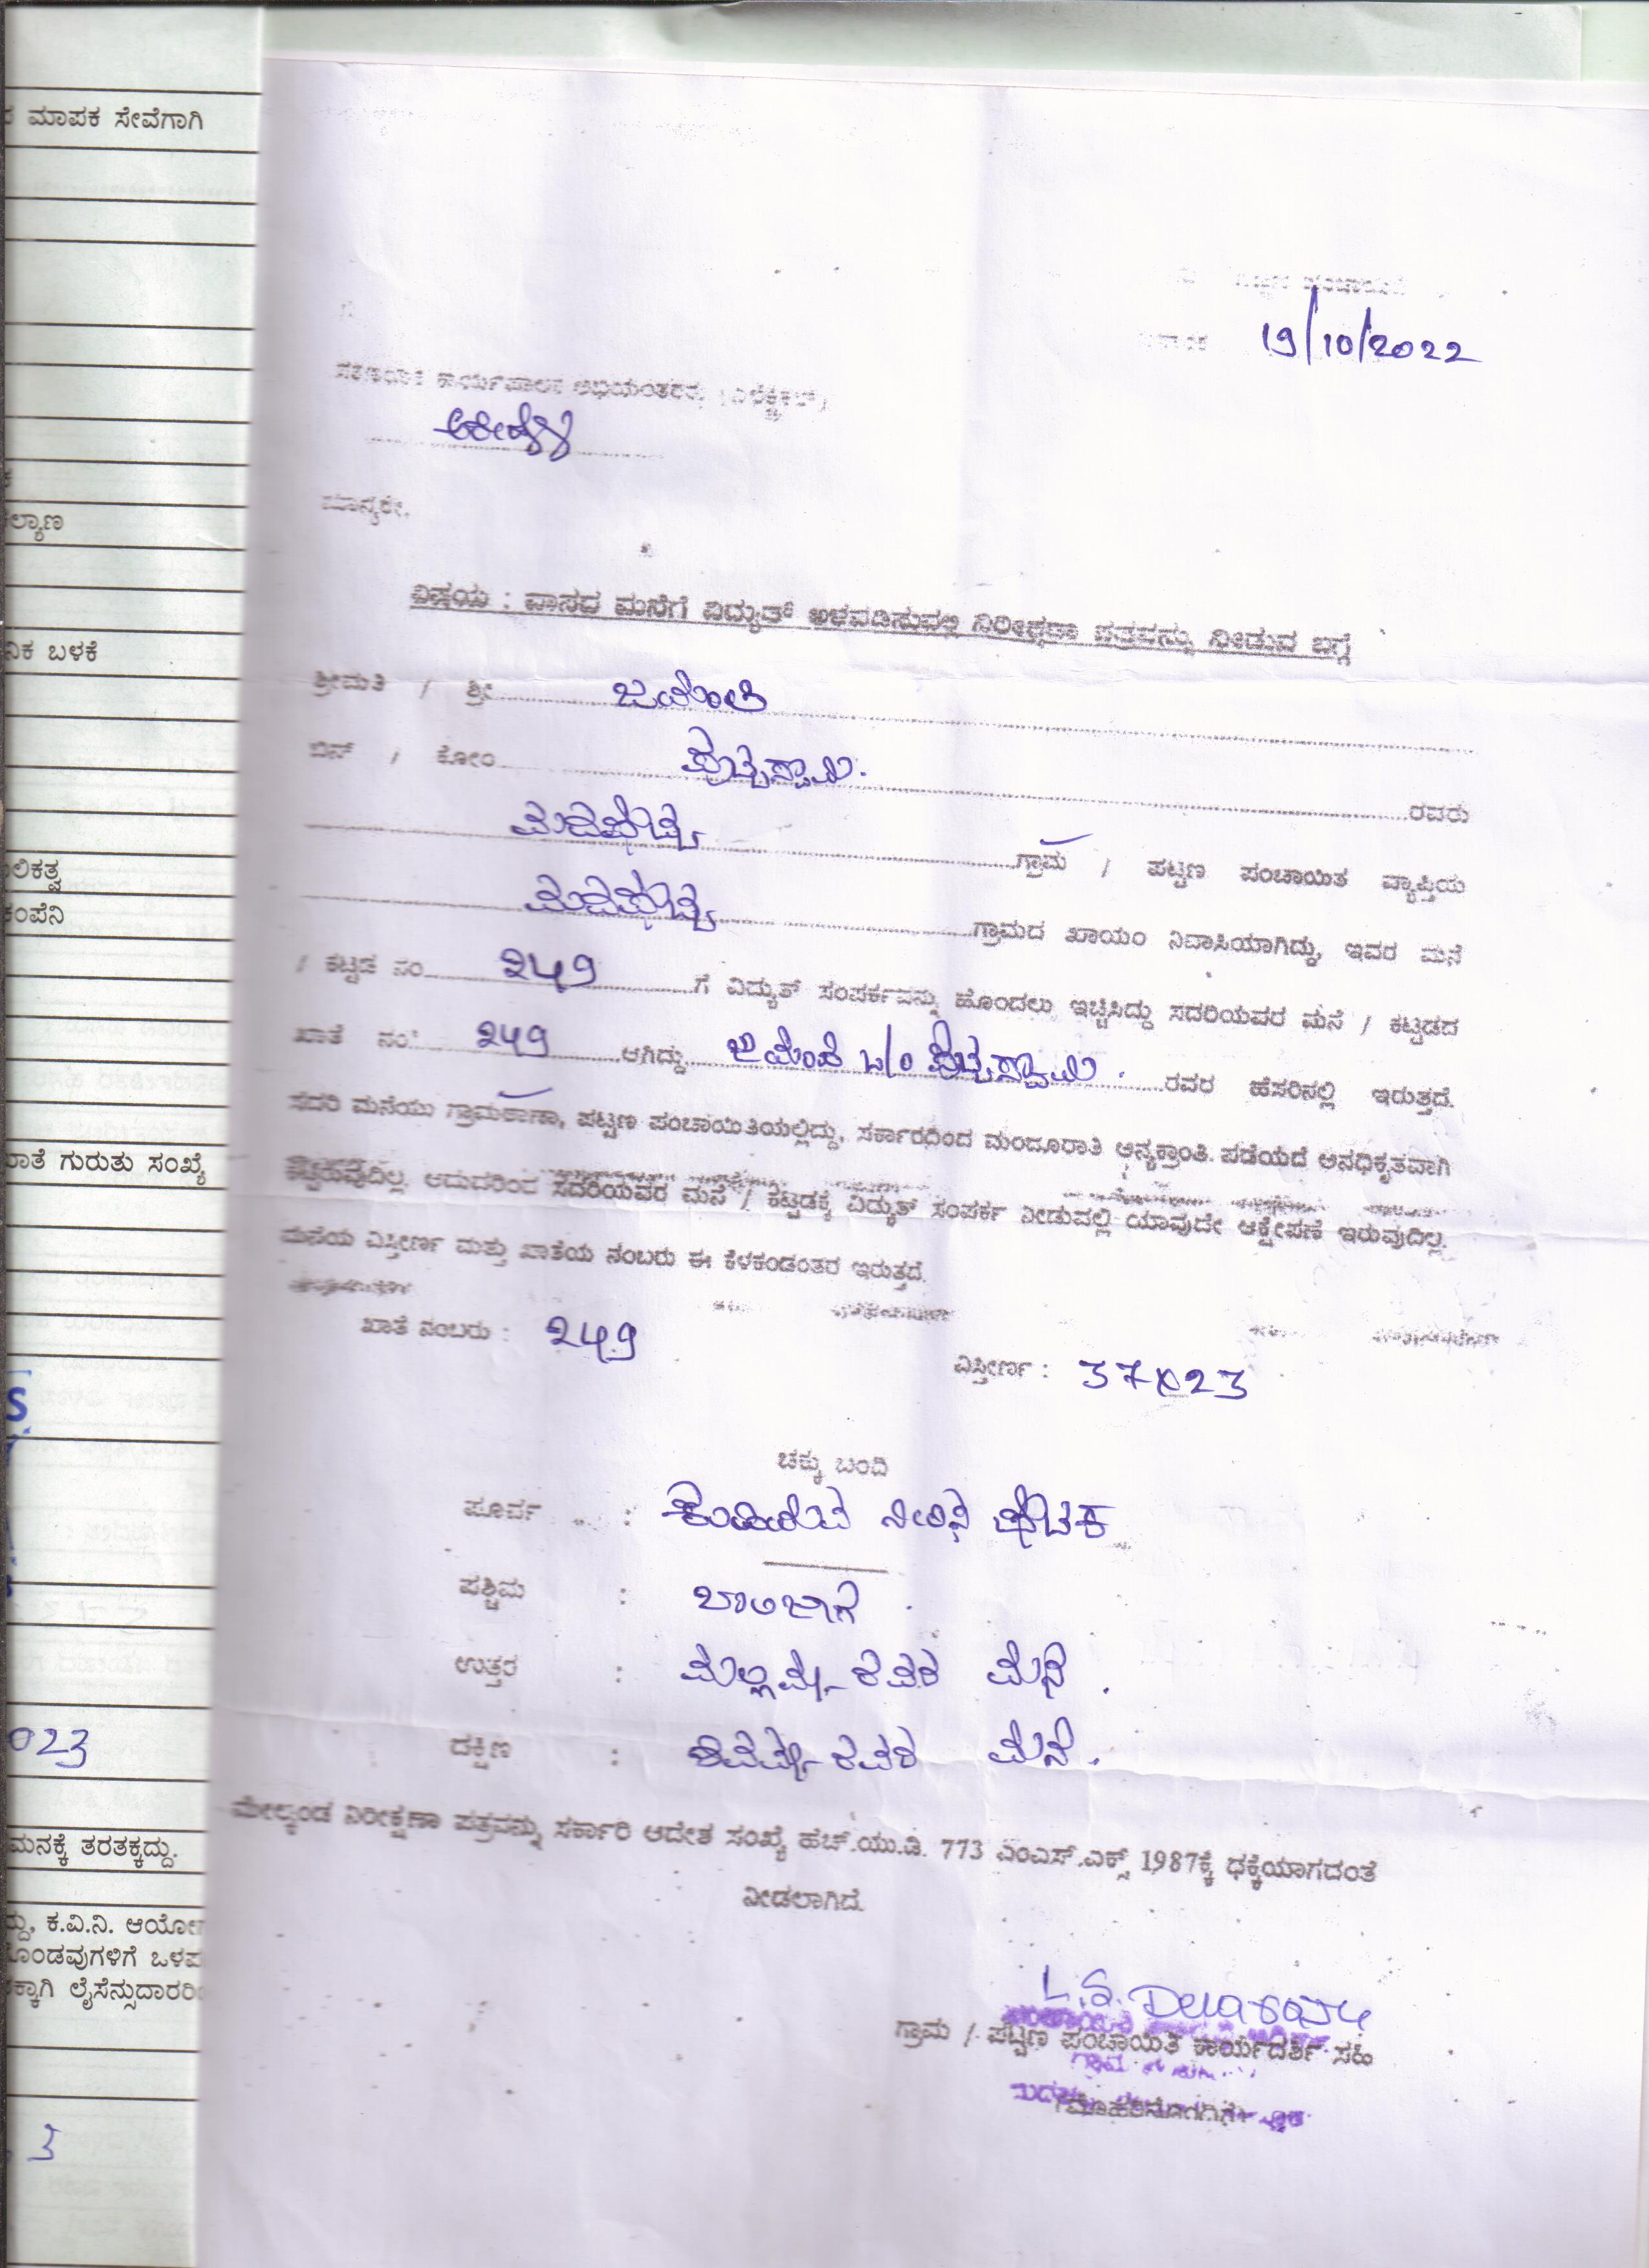 ಮಾಪಕ ಸೇವೆಗಾಗಿ
ಪಂಚಾಯಿತಿ
19/10/2022
ಸಹಾಯಕ ಕಾರ್ಯಪಾಲಕ ಅಭಿಯಂತರರು (ಎಲೆಕ್ಟ್ರಿಕಲ್)
ಮಾನ್ಯರೇ,
ಲ್ಯಾಣ
ವಿಷಯ : ವಾಸದ ಮನೆಗೆ ವಿದ್ಯುತ್ ಅಳವಡಿಸುವಲ್ಲಿ ನಿರೀಕ್ಷಣಾ ಪತ್ರವನ್ನು ನೀಡುವ ಬಗ್ಗೆ
ನಿಕ ಬಳಕೆ
ಶ್ರೀಮತಿ / ಶ್ರೀ ಜಯಂತಿ
ಬಿನ್ / ಕೋಂ ಪುಟ್ಟಸ್ವಾಮಿ. ರವರು
ಗ್ರಾಮ / ಪಟ್ಟಣ ಪಂಚಾಯಿತ ವ್ಯಾಪ್ತಿಯ
ಲಿಕತ್ವ
ಕಂಪೆನಿ
ಗ್ರಾಮದ ಖಾಯಂ ನಿವಾಸಿಯಾಗಿದ್ದು, ಇವರ ಮನೆ
/ ಕಟ್ಟಡ ನಂ 249 ಗೆ ವಿದ್ಯುತ್ ಸಂಪರ್ಕವನ್ನು ಹೊಂದಲು ಇಚ್ಛಿಸಿದ್ದು ಸದರಿಯವರ ಮನೆ / ಕಟ್ಟಡದ
ಖಾತೆ ನಂ 249 ಆಗಿದ್ದು ಪುಟ್ಟಸ್ವಾಮಿ. ರವರ ಹೆಸರಿನಲ್ಲಿ ಇರುತ್ತದೆ.
ಸದರಿ ಮನೆಯು ಗ್ರಾಮಠಾಣಾ, ಪಟ್ಟಣ ಪಂಚಾಯಿತಿಯಲ್ಲಿದ್ದು, ಸರ್ಕಾರದಿಂದ ಮಂದೂರಾತಿ ಅನ್ಯಕ್ರಾಂತಿ. ಪಡೆಯದೆ ಅನಧಿಕೃತವಾಗಿ
ಖಾತೆ ಗುರುತು ಸಂಖ್ಯೆ
ಕಟ್ಟಿರುವುದಿಲ್ಲ. ಆದುದರಿಂದ ಸದರಿಯವರ ಮನೆ / ಕಟ್ಟಡಕ್ಕೆ ವಿದ್ಯುತ್ ಸಂಪರ್ಕ ನೀಡುವಲ್ಲಿ ಯಾವುದೇ ಆಕ್ಷೇಪಣೆ ಇರುವುದಿಲ್ಲ.
ಮನೆಯ ವಿಸ್ತೀರ್ಣ ಮತ್ತು ಖಾತೆಯ ನಂಬರು ಈ ಕೆಳಕಂಡಂತರ ಇರುತ್ತದೆ.
ಖಾತೆ ನಂಬರು : 249
ವಿಸ್ತೀರ್ಣ : 37X23
S.
ಚಕ್ಕು ಬಂದಿ
ಪೂರ್ವ : ಕುಡಿಯುವ ನೀರಿನ ಘಟಕ
ಪಶ್ಚಿಮ : ಖಾಲಿಜಾಗ
ಉತ್ತರ : ಮನೆ.
ದಕ್ಷಿಣ : ಮನೆ.
023
ಮೇಲ್ಕಂಡ ನಿರೀಕ್ಷಣಾ ಪತ್ರವನ್ನು ಸರ್ಕಾರಿ ಆದೇಶ ಸಂಖ್ಯೆ ಹೆಚ್.ಯು.ಡಿ. 773 ಎಂಎಸ್.ಎಕ್ಸ್ 1987ಕ್ಕೆ ಧಕ್ಕೆಯಾಗದಂತೆ
ಮನಕ್ಕೆ ತರತಕ್ಕದ್ದು.
ನೀಡಲಾಗಿದೆ.
ದ್ದು, ಕ.ವಿ.ನಿ. ಆಯೋಗ
ಾಂಡವುಗಳಿಗೆ ಒಳಪ
ಕ್ಕಾಗಿ ಲೈಸೆನ್ಸುದಾರರಿ
L.S.
ಗ್ರಾಮ / ಪಟ್ಟಣ ಪಂಚಾಯಿತಿ ಕಾರ್ಯದರ್ಶಿ ಸಹಿ
(ಮೊಹರಿನೊಂದಿಗೆ)
3